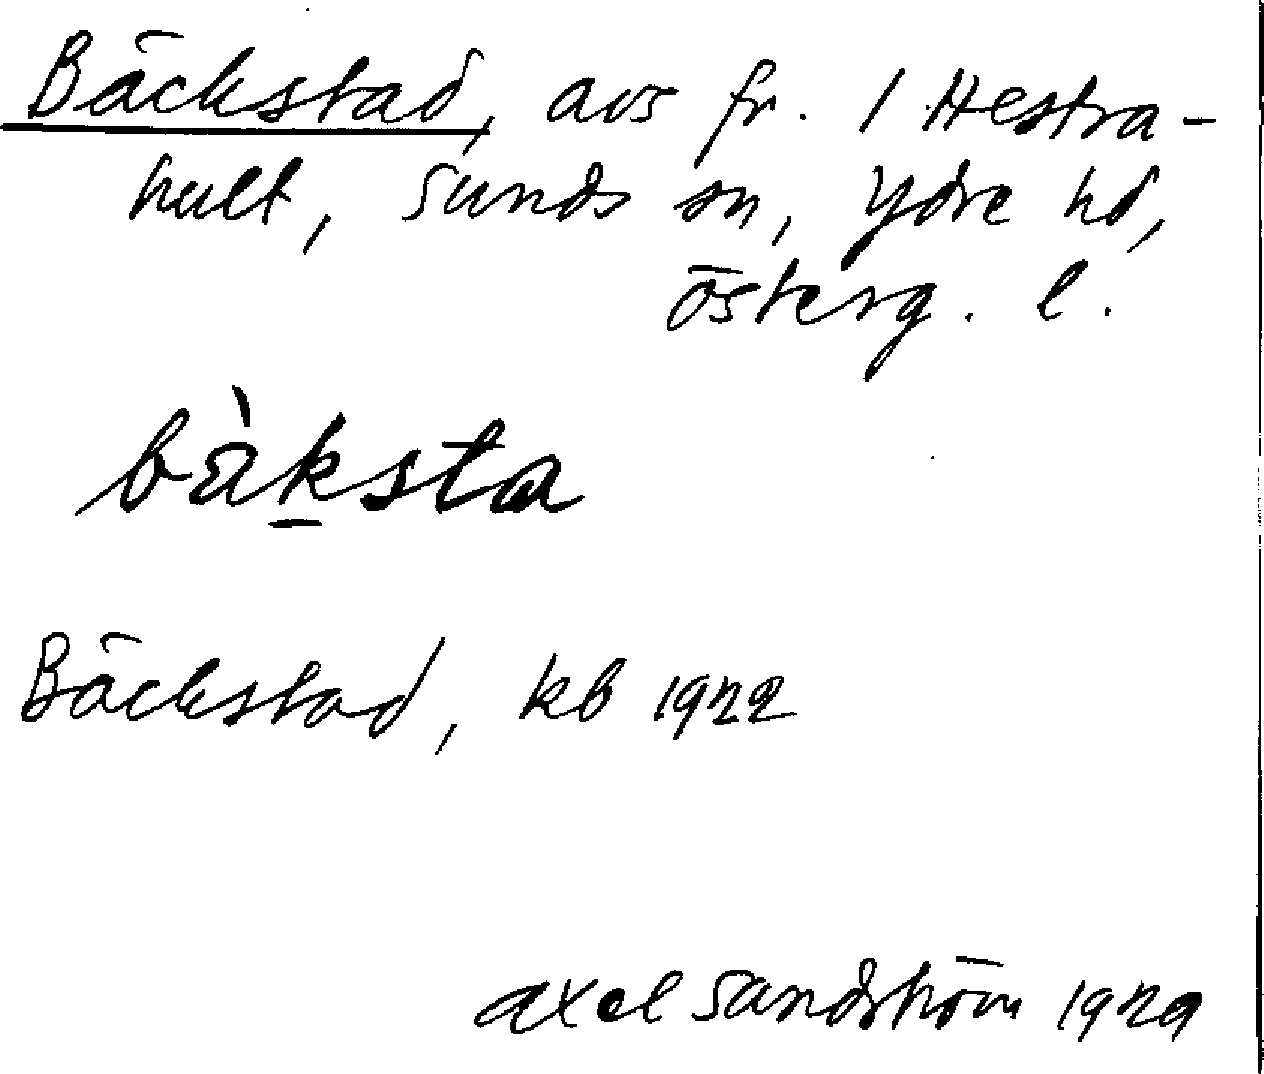 Bäckstad, avs fr. 1 Hestra-
hult, Sunds sn, Ydre hd,
Österg. l.
bàksta
Bäckstad, kb 1922
Axel Sandström 1929